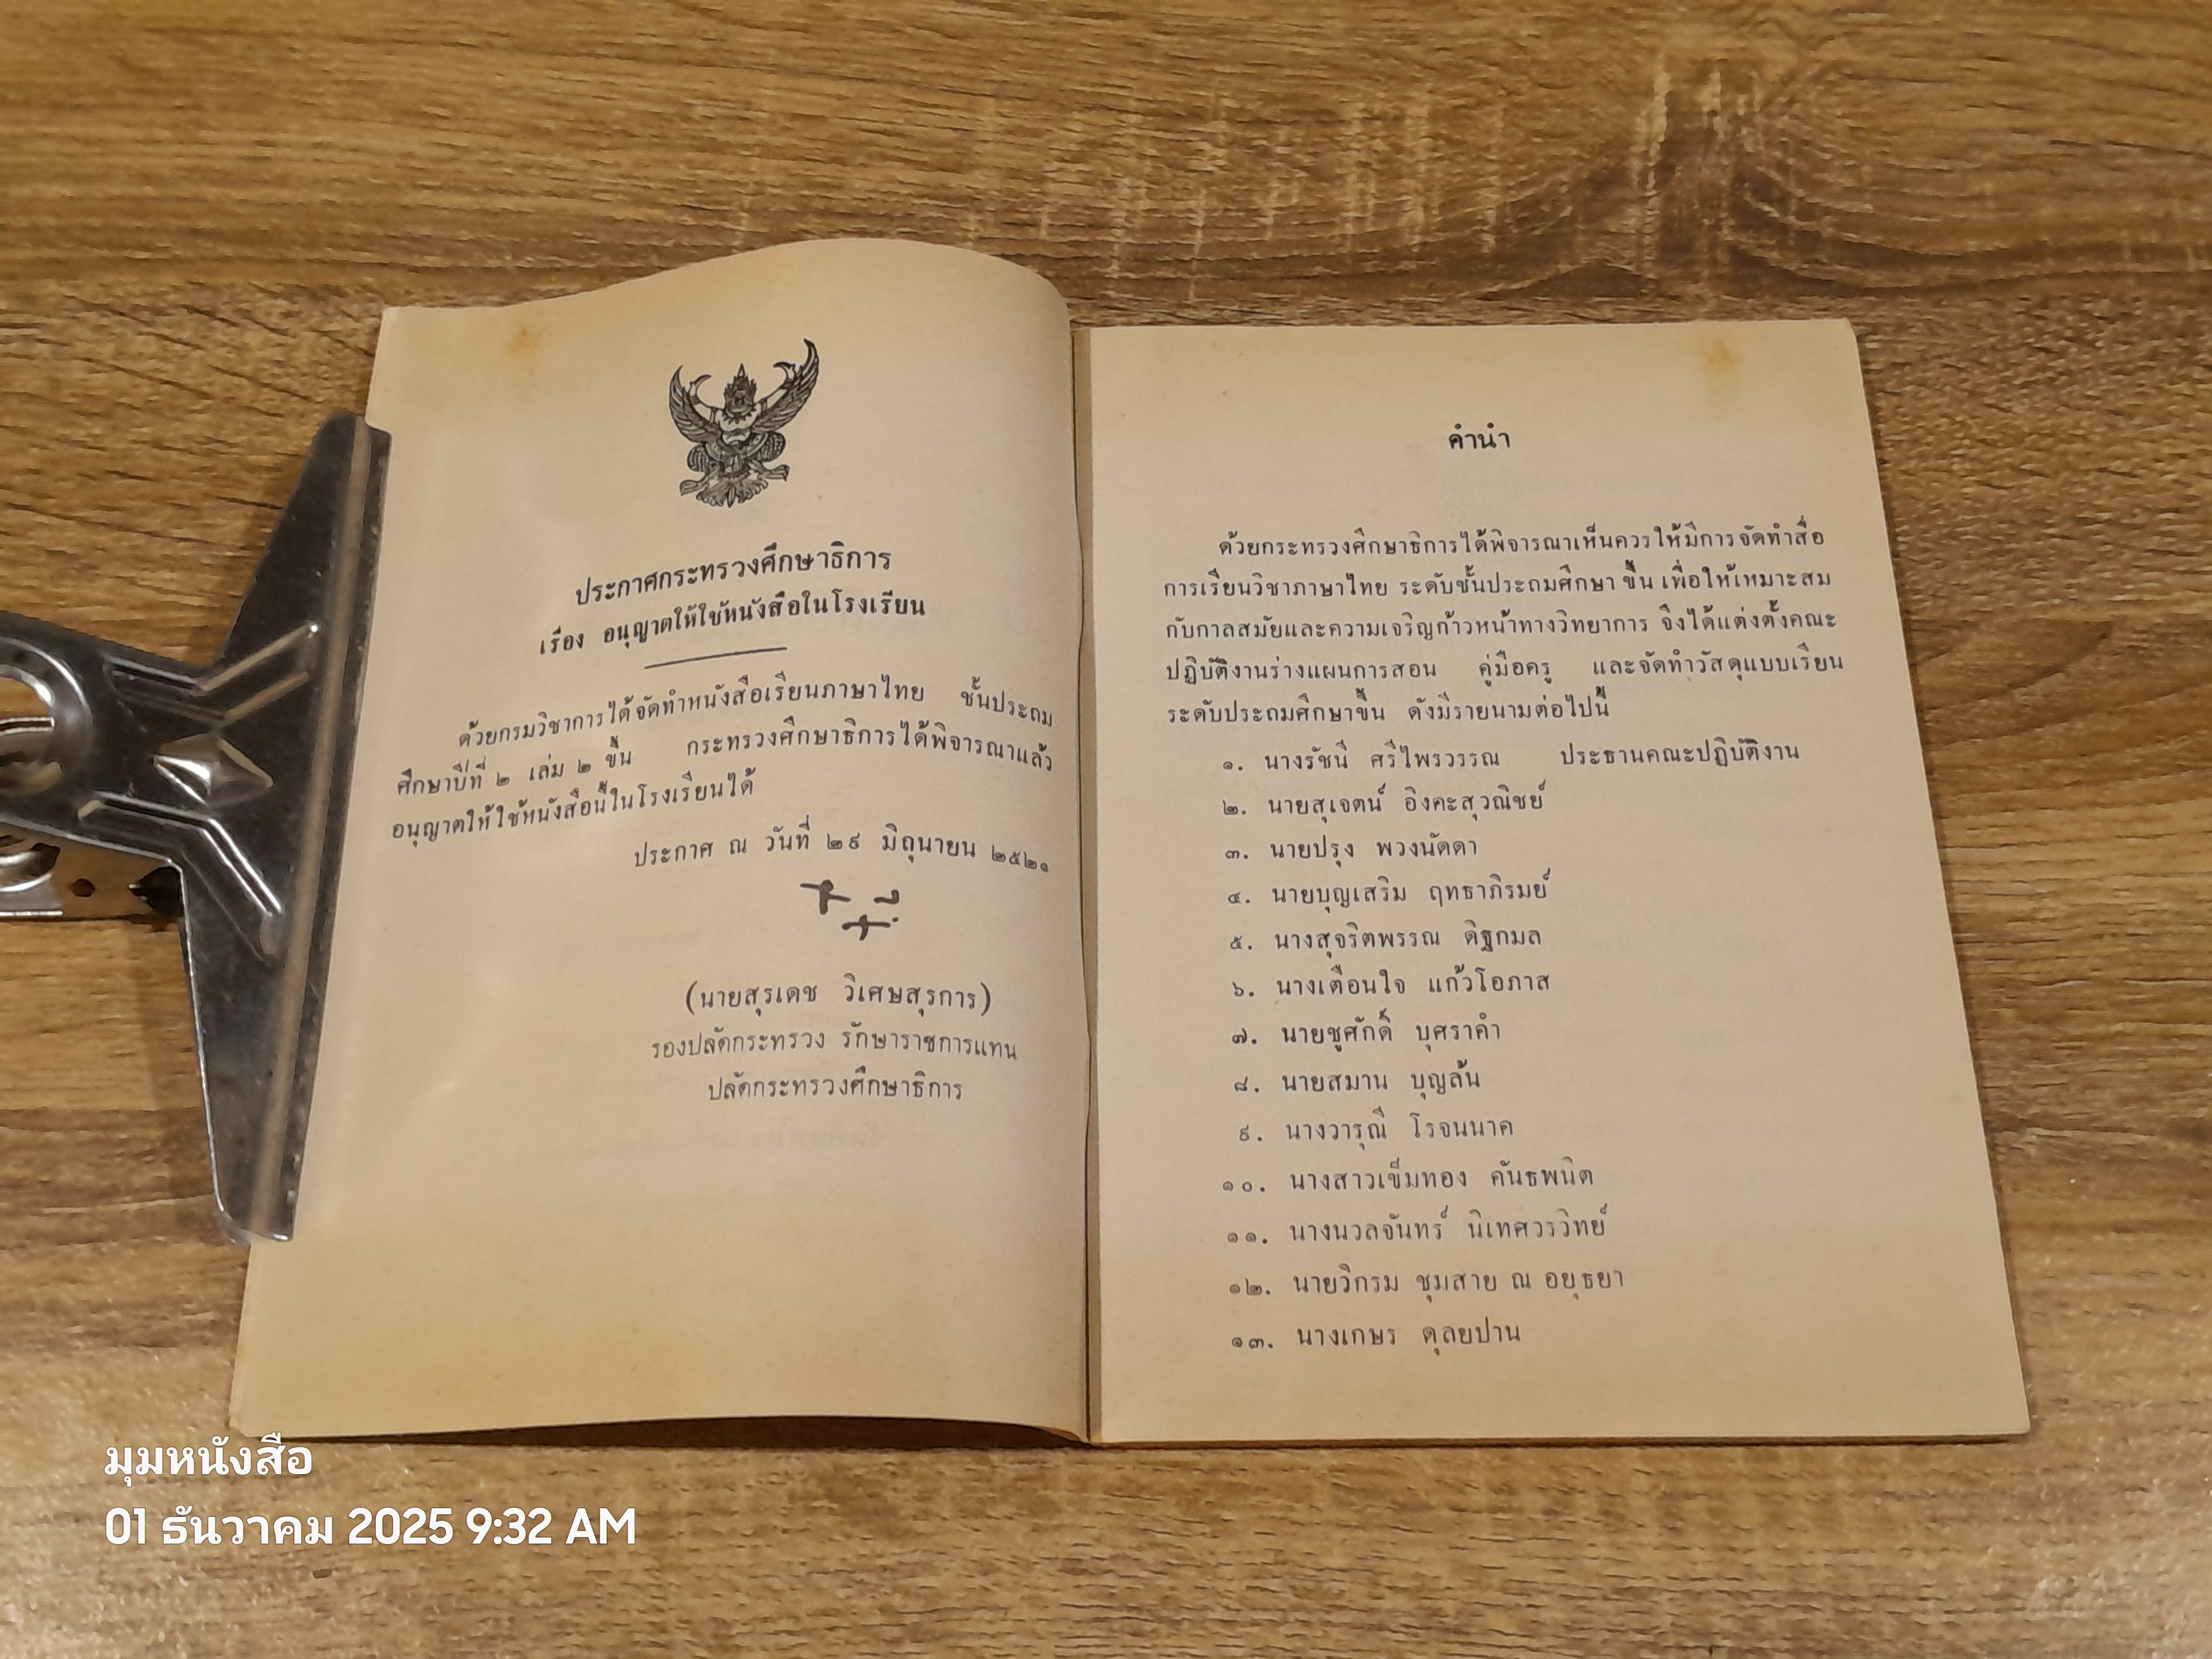 ประกาศกระทรวงศึกษาธิการ
เรื่อง อนุญาตให้ใช้หนังสือในโรงเรียน
ด้วยกรมวิชาการได้จัดทำหนังสือเรียนภาษาไทย ชั้นประถม
ศึกษาปีที่ ๒ เล่ม ๒ ขึ้น กระทรวงศึกษาธิการได้พิจารณาแล้ว
อนุญาตให้ใช้หนังสือนี้ในโรงเรียนได้
ประกาศ ณ วันที่ ๒๙ มิถุนายน ๒๕๒๑
(นายสุรเดช วิเศษสุรการ)
รองปลัดกระทรวง รักษาราชการแทน
ปลัดกระทรวงศึกษาธิการ
คำนำ
ด้วยกระทรวงศึกษาธิการได้พิจารณาเห็นควรให้มีการจัดทำสื่อ
การเรียนวิชาภาษาไทย ระดับชั้นประถมศึกษา ขึ้น เพื่อให้เหมาะสม
กับกาลสมัยและความเจริญก้าวหน้าทางวิทยาการ จึงได้แต่งตั้งคณะ
ปฏิบัติงานร่างแผนการสอน คู่มือครู และจัดทำวัสดุแบบเรียน
ระดับประถมศึกษาขึ้น ดังมีรายนามต่อไปนี้
๑. นางรัชนี ศรีไพรวรรณ ประธานคณะปฏิบัติงาน
๒. นายสุเจตน์ อิงคะสุวณิชย์
๓. นายปรุง พวงนัดดา
๔. นายบุญเสริม ฤทธาภิรมย์
๕. นางสุจริตพรรณ ดิฐกมล
๖. นางเตือนใจ แก้วโอภาส
๗. นายชูศักดิ์ บุศราคำ
๘. นายสมาน บุญล้น
๙. นางวารุณี โรจนนาค
๑๐. นางสาวเข็มทอง คันธพนิต
๑๑. นางนวลจันทร์ นิเทศวรวิทย์
๑๒. นายวิกรม ชุมสาย ณ อยุธยา
๑๓. นางเกษร ดุลยปาน
มุมหนังสือ
01 ธันวาคม 2025 9:32 AM